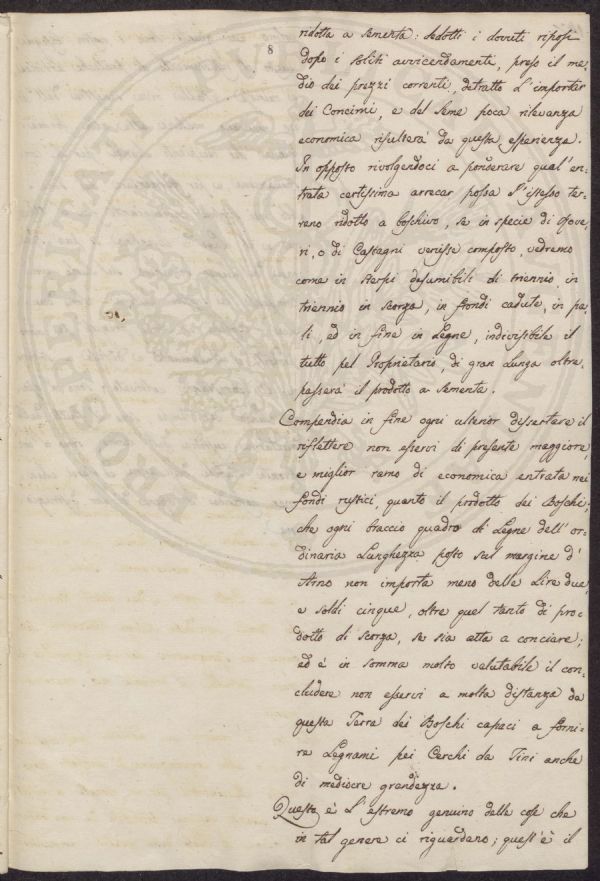 8
ridotta a sementa: dedotti i dovuti riposi
dopo i soliti avvicendamenti, preso il me=
dio dei prezzi correnti, detratto l'importar
dei Concimi, e del seme poca rilevanza
economica risulterà da questa esperienza.
In opposto rivolgendoci a ponderare qual'en=
trata certissima arrecar possa l'istesso ter=
reno ridotto a boschivo, se in specie di
ri, o di Castagni venisse composto, vedremo
come in sterpi desumibili di triennio in
triennio in scorza, in frondi cadute, in pa=
li, ed in fine in Legne, indivisibile il
tutto pel Proprietario, di gran Lunga oltre=
passerà il prodotto a sementa.
Compendia in fine ogni ulterior dissertare il
riflettere non esservi di presente maggiore,
e miglior ramo di economica entrata nei
fondi rustici, quanto il prodotto dei Boschi:
che ogni braccio quadro di Legne dell'or=
dinaria Lunghezza posto sul margine d'
Arno non importa meno delle Lire due,
e soldi cinque, oltre quel tanto di pro=
dotto di scorza, se sia atta a conciare;
ed è in somma molto valutabile il con=
cludere non esservi a molta distanza da
questa Terra dei Boschi capaci a forni=
re Legnami pei Cerchi da Tini anche
di mediocre grandezza.
Questo è l'estremo genuino delle cose che
in tal genere ci riguardano; quest'è il